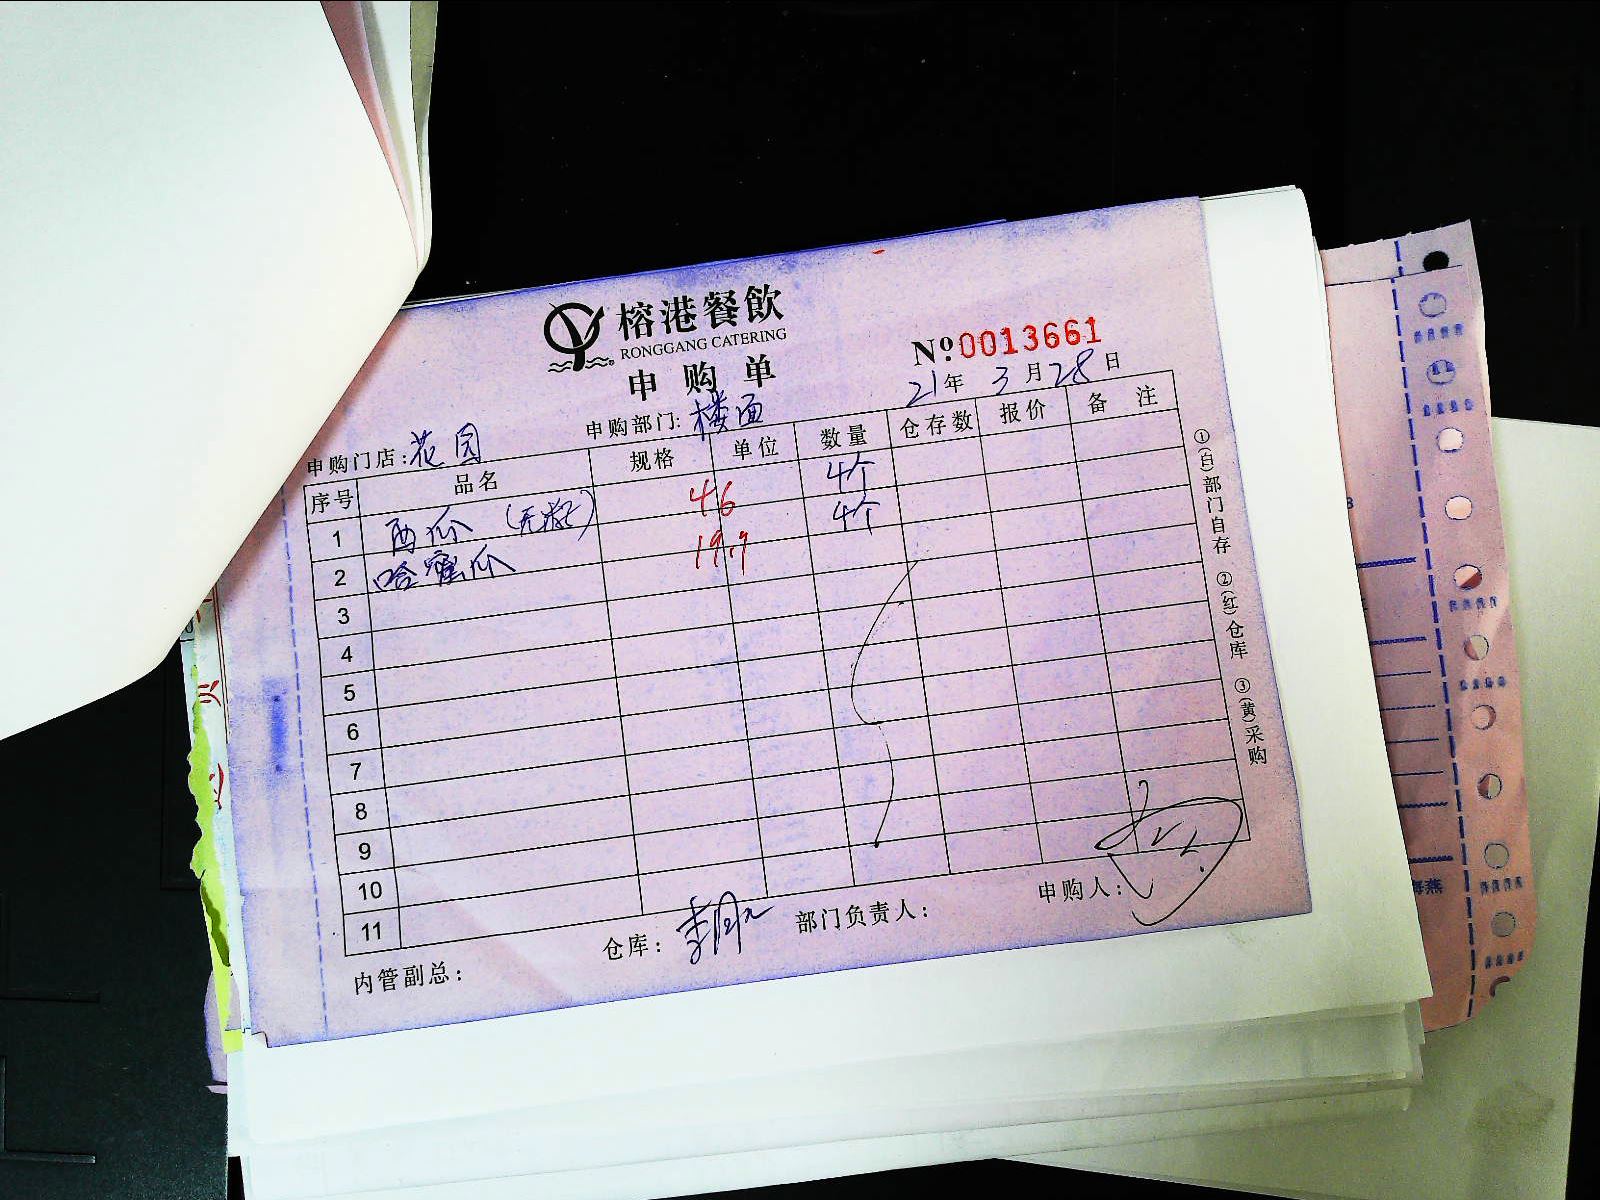 榕港餐飲
RONGGANG CATERING
申购单
№0013661
21年 3月28日
申购门店:花园 申购部门:楼面
序号 品名 规格 单位 数量 仓存数 报价 备注
1 西瓜(无籽) 46 4个
2 哈蜜瓜 19.7 4个
3
4
5
6
7
8
9
10
11
内管副总: 仓库: 部门负责人: 申购人:
①(白)部门自存 ②(红)仓库 ③(黄)采购
海燕